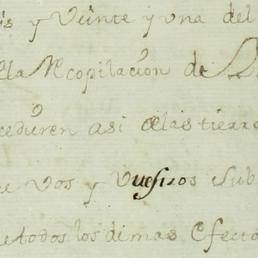 is y veinte y una del
la Recopilacion de
cedieren asi de las tierra
e vos y vuestros sub
e todos los demas efecto